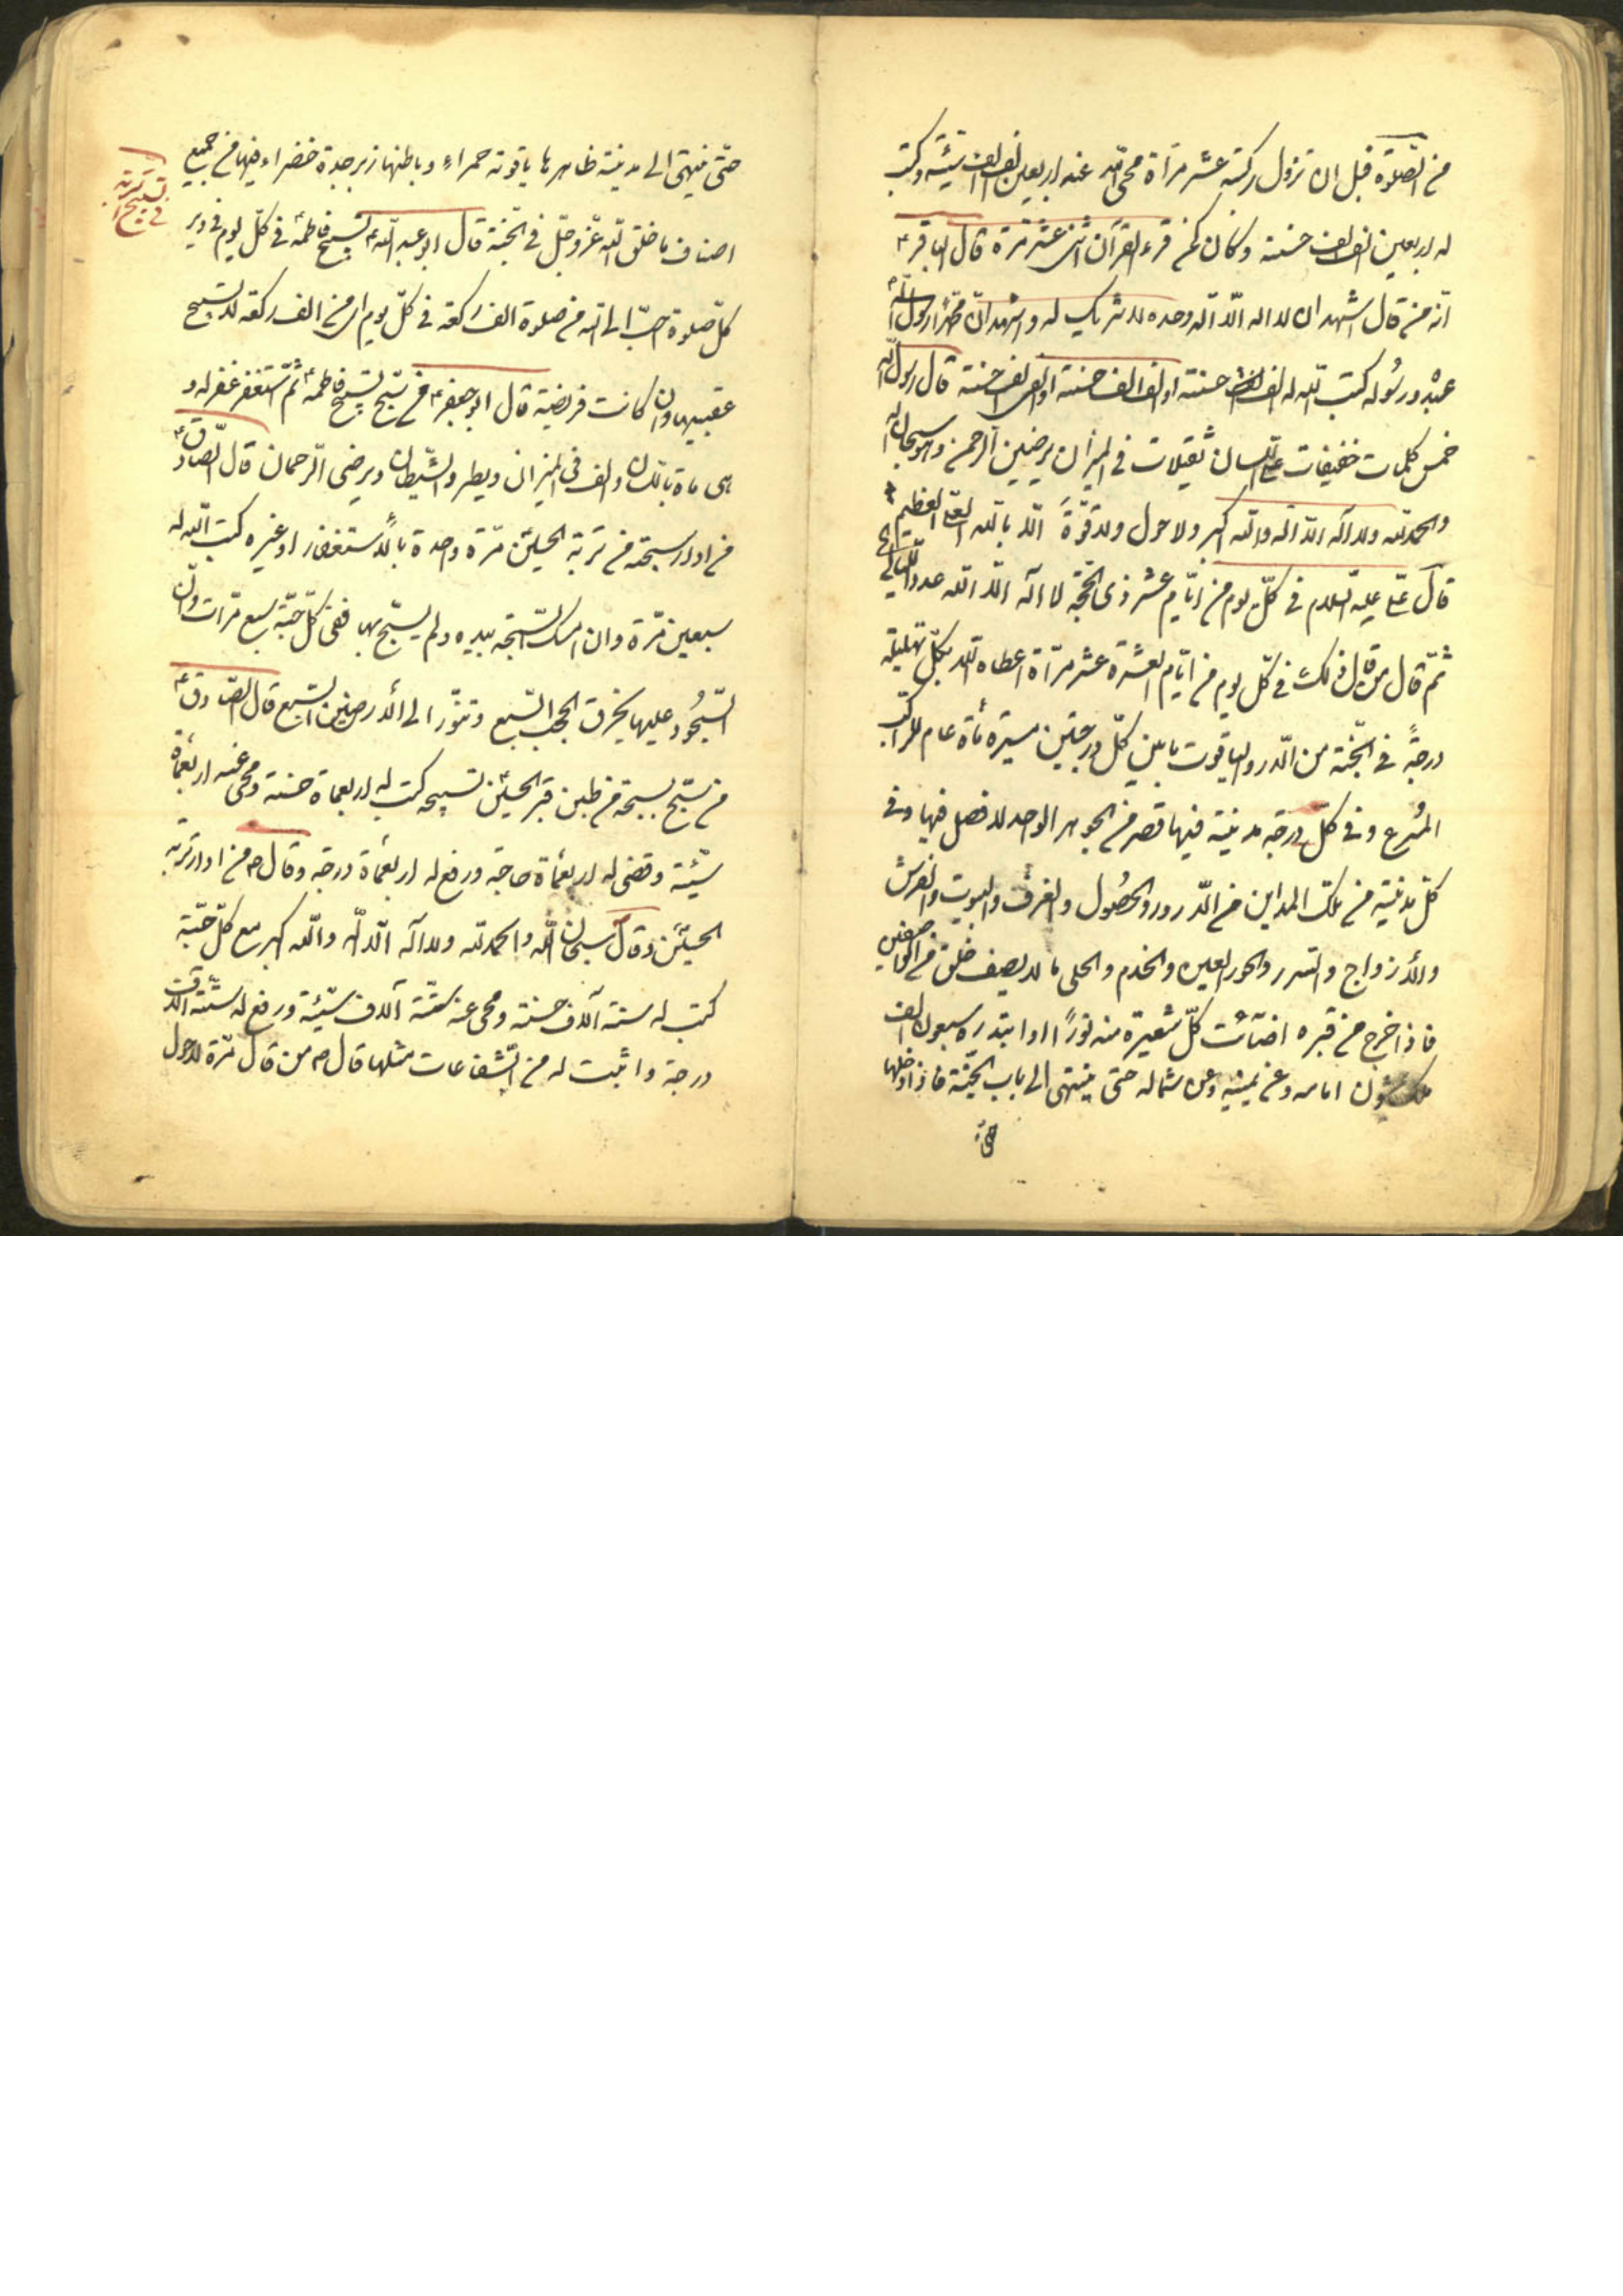 من الصّلوة قبل ان تزول ركبته عشر مرّاة محى اللّه عنه اربعين الف الف سيّئة وكتب
له اربعين الف الف حسنة وكان كمن قرء القرآن اثنى عشر مرّة قال الباقر ع
انّه من قال اشهد ان لا اله الّا اللّه وحده لا شريك له و اشهد انّ محمّدًا رسول اللّه
عبده ورسُوله كتب اللّه له الف الف حسنة قال رسول اللّه
خمس كلمات خفيفات على اللّسان ثقيلات فى الميزان يرضين الرّحمن وهو سبحان اللّه
والحمد للّه ولا اله الّا اللّه واللّه اكبر ولا حول ولا قوّةَ الّا باللّه العلىّ العظيم
قال علىّ عليه السّلام فى كلّ يوم من ايّام عشر ذى الحّجة لا اله الّا اللّه عدد اللّيالى
ثمّ قال من قال ذلك فى كلّ يوم من ايّام العشرة عشر مرّاة اعطاه اللّه بكلّ تهليلة
درجةً فى الجّنة من الدّر والياقوت ما بين كلّ درجتين مسيرة مأة عام للراكب
المُسرع وفى كلّ درجة مدينة فيها قصر من الجوهر الواحد لا فصل فيها وفى
كلّ مدينة من تلك المداين من الدّور والحصُول والغرف والبيوت والفرش
والأزواج والسّرر والحور العين والخدم والحلى ما لا يصف خلق من الواصفين
فاذا خرج من قبره اضآئت كلّ شعيرة منه نورًا وابتدره سبعون الف
ملك يمشون امامه وعن يمينه وعن شماله حتى ينتهى الى باب الجّنة فاذا دخلها
حتّى ينتهى الى مدينة ظاهرها ياقوتة حمراء وباطنها زبرجدة خضراء فيها من جميع
اصناف ما خلق اللّه عزّ وجلّ فى الجّنة قال ابو عبد اللّه ع تسبيح فاطمة ع فى كلّ يوم فى دبر
كلّ صلوة احبّ الى اللّه من صلوة الف ركعة فى كلّ يوم من الف ركعة لا تسبيح
عقيبها وان كانت فريضة قال ابو جعفر ع من سبّح تسبيح فاطمة ع ثمّ استغفر غفر له و
هى ماة باللّسان والف فى الميزان ويطرد الشّيطان ويرضى الرّحمان قال الصّادق ع
من ادار سبحته من تربة الحسين مرّة واحدة بالأستغفار او غيره كتب اللّه له
سبعين مرّة وان امسك السّبحة بيده ولم يسبّح بها ففى كلّ حبّة سبع مرّات وانّ
السّجُود عليها يخرق الحجب السّبع وتنوّر الى الأرضين السّبع قال الصّادق ع
من سبّح بسبحة من طين قبر الحسين تسبيحة كتب له اربعماة حسنة ومحى عنه اربعمأة
سيّئة وقضى له اربعمأة حاجة ورفع له اربعمأة درجة وقال ع من ادار تربة
الحسين وقال سبحان اللّه والحمد للّه ولا اله الّا اللّه واللّه اكبر مع كلّ حبّة
كتب له ستة آلاف حسنة ومحى عنه ستّة آلاف سيّئة ورفع له ستّة آلاف
درجة واثبت له من الشّفاعات مثلها قال ع من قال مرّة لا حول